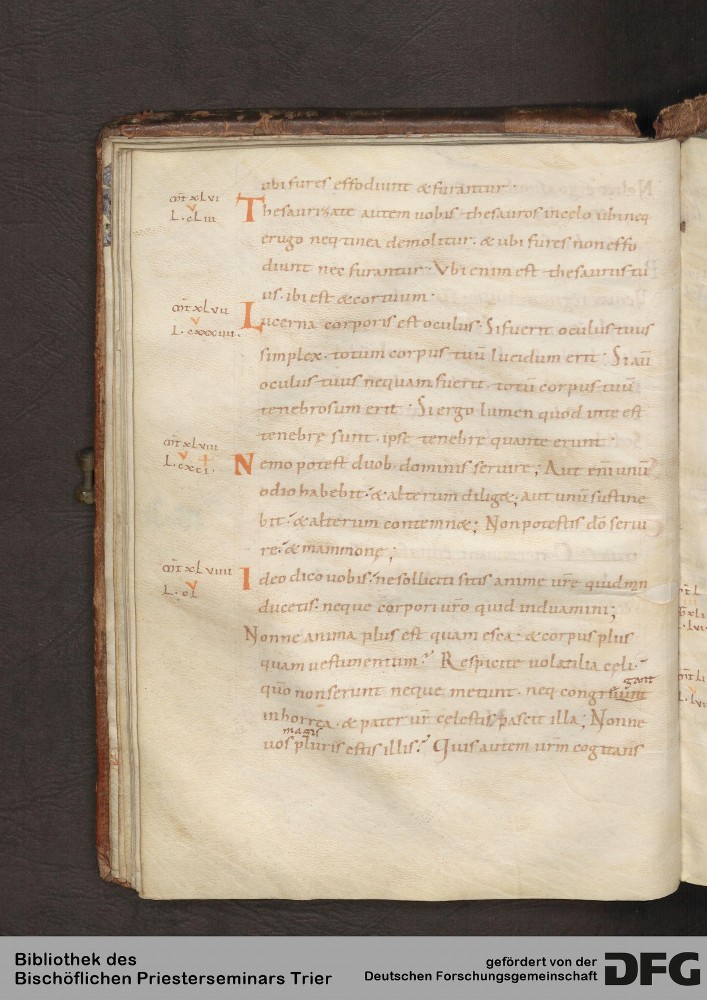 ubi fures effodiunt & furantur·
mt xlvi
Thesaurizate autem uobis thesauros in celo ubi neq
L. cliii
erugo neq tinea demolitur· & ubi fures non effo
diunt nec furantur· Vbi enim est thesaurus tu
us· ibi est & cor tuum·
mt xlvii
Lucerna corporis est oculus· Si fuerit oculus tuus
L. cxxxiiii.
simplex· totum corpus tuū lucidum erit· Si aū
oculus tuus nequam fuerit· totū corpus tuū
tenebrosum erit· Si ergo lumen quod in te est
tenebrę sunt· ipse tenebrę quante erunt·
mt xlviii
Nemo potest duob· dominis seruire; Aut eni unū
L. cxci.
odio habebit· & alterum dilig&; aut unū sustine
bit· & alterum contemn&; Non potestis dō serui
re· & mammone;
mt xlviiii
Ideo dico uobis· ne solliciti sitis anime ure quid mn
L. cl
ducetis· neque corpori uro quid induamini;
Nonne anima plus est quam esca· & corpus plus
quam uestimentum· Respicite uolatilia celi·
gant
qūo non serunt neque metunt· neq congriunt
in horrea· & pater ur celestis pascit illa; Nonne
magis
uos pluris estis illis· Quis autem urm cogitans
Bibliothek des
Bischöflichen Priesterseminars Trier
gefördert von der
Deutschen Forschungsgemeinschaft
DFG